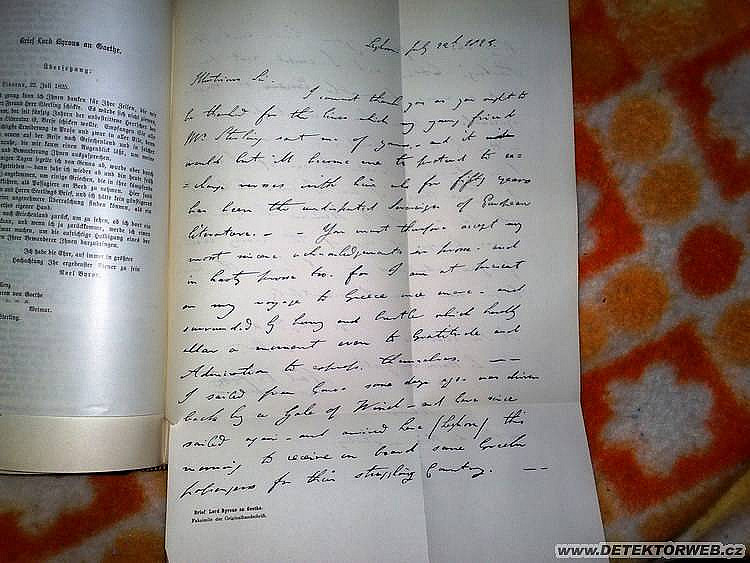 Brief Lord Byrons an Goethe.
Übersetzung:
22. Juli 1823.
genug kann ich Ihnen danken für Ihre Zeilen, die mir
Freund Herr Sterling schickte. Es würde sich nicht ziemen,
der seit fünfzig Jahren der unbestrittene Herrscher der
Literatur ist, Verse schicken wollte. Empfangen Sie also
Erwiderung in Prosa und zwar in aller Eile, denn
auf der Reise nach Griechenland und in solcher
die mir kaum einen Augenblick läßt, um meiner
Bewunderung Ihnen auszusprechen.
einigen Tagen segelte ich von Genua ab, wurde aber durch
angekommen, um einige Griechen, die in ihre kämpfende
als Passagiere an Bord zu nehmen. Hier
Herrn Sterlings Brief, und ich hätte kein günstigeres
angenehmere Überraschung finden können, als dieses
Goethes eigener Hand.
nach Griechenland zurück, um zu sehen, ob ich dort ein
und wenn ich je zurückkomme, dann werde ich
machen, um die aufrichtige Huldigung eines der
Ihrer Bewunderer Ihnen darzubringen.
Ich habe die Ehre, auf immer in größter
Hochachtung Ihr ergebenster Diener zu sein
Noel Byron.
von Goethe
Weimar.
Sterling.
Leghorn July 22d. 1823.
Illustrious Sir.
I cannot thank you as you ought to
be thanked for the lines which my young friend
Mr Sterling sent me of yours, and it
would but ill become me to pretend to ex-
=change verses with him who for fifty years
has been the undisputed Sovereign of European
literature. – – You must therefore accept my
most sincere acknowledgements in prose – and
in hasty prose too – for I am at present
on my voyage to Greece once more – and
surrounded by hurry and bustle which hardly
allow a moment even to Gratitude and
Admiration to express themselves. – –
I sailed from Genoa some days ago – was driven
back by a Gale of Wind – and have since
sailed again – and arrived here (Leghorn) this
morning to receive on board some Greek
passengers for their struggling Country. – –
Brief Lord Byrons an Goethe.
Faksimile der Originalhandschrift.
www.DETEKTORWEB.cz